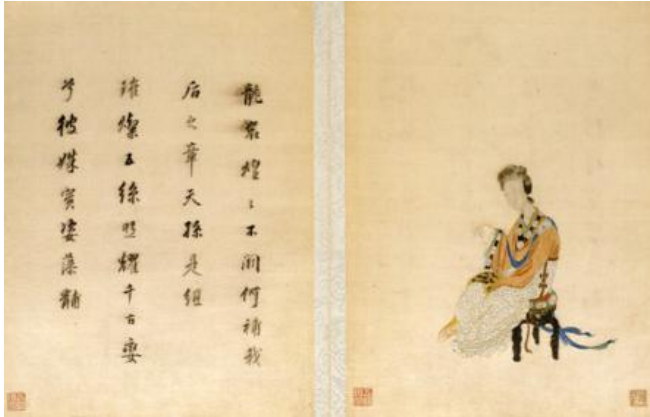 龍衮煌〻不闕何補我
后之章天孫是組
璀燦五絲照耀千古孌
兮彼姝實姿藻黼